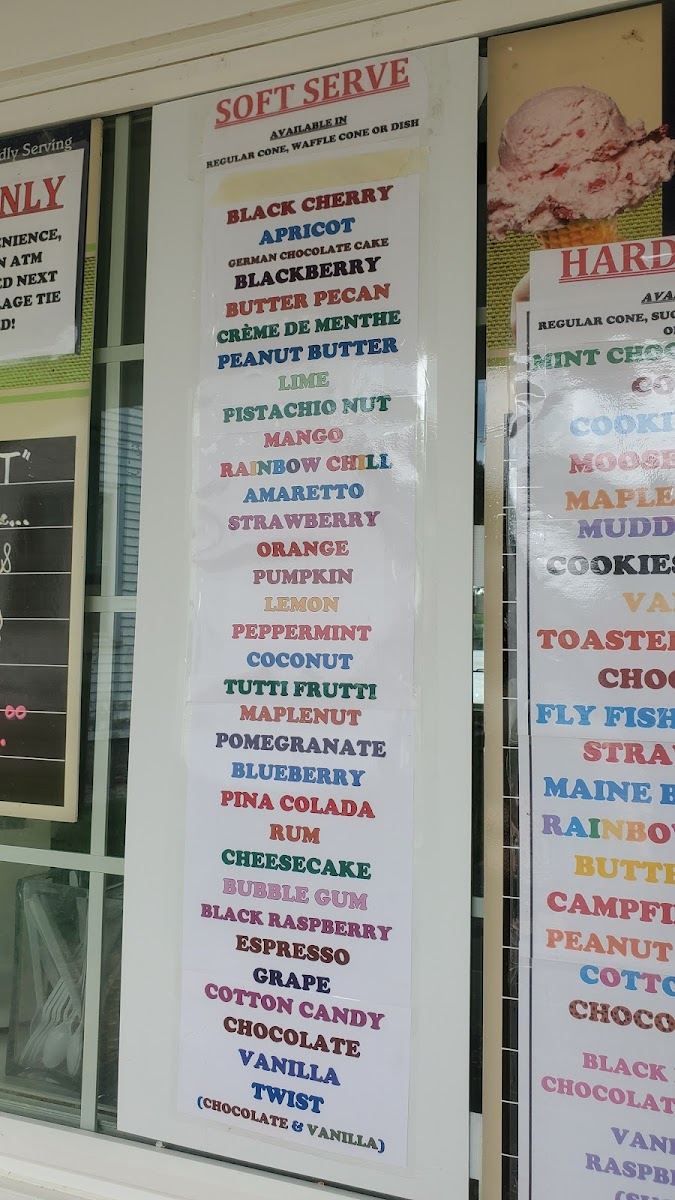 dly Serving
NLY
ENIENCE,
N ATM
ED NEXT
LAGE TIE
D!
T"
SOFT SERVE
AVAILABLE IN
REGULAR CONE, WAFFLE CONE OR DISH
BLACK CHERRY
APRICOT
GERMAN CHOCOLATE CAKE
BLACKBERRY
BUTTER PECAN
CRÈME DE MENTHE
PEANUT BUTTER
LIME
PISTACHIO NUT
MANGO
RAINBOW CHILL
AMARETTO
STRAWBERRY
ORANGE
PUMPKIN
LEMON
PEPPERMINT
COCONUT
TUTTI FRUTTI
MAPLENUT
POMEGRANATE
BLUEBERRY
PINA COLADA
RUM
CHEESECAKE
BUBBLE GUM
BLACK RASPBERRY
ESPRESSO
GRAPE
COTTON CANDY
CHOCOLATE
VANILLA
TWIST
(CHOCOLATE & VANILLA)
HARD
AVA
REGULAR CONE, SUG
O
MINT CHOC
CO
COOKI
MOOSE
MAPLE
MUDD
COOKIES
VA
TOASTE
CHOC
FLY FISH
STRA
MAINE B
RAINBOW
BUTTE
CAMPFI
PEANUT
COTTO
CHOCO
BLACK
CHOCOLAT
VANI
RASPBE